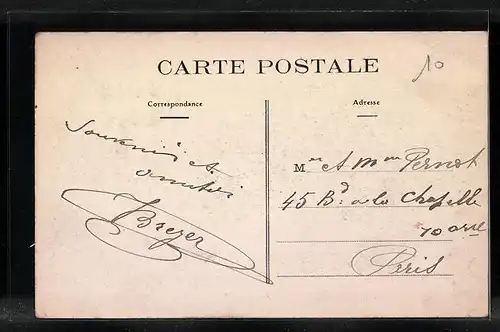 10
CARTE POSTALE
Correspondance
Souvenir et
amitié
Adresse
Mr et Mme Pernot
45 Bd de la Chapelle
10 arr
Paris